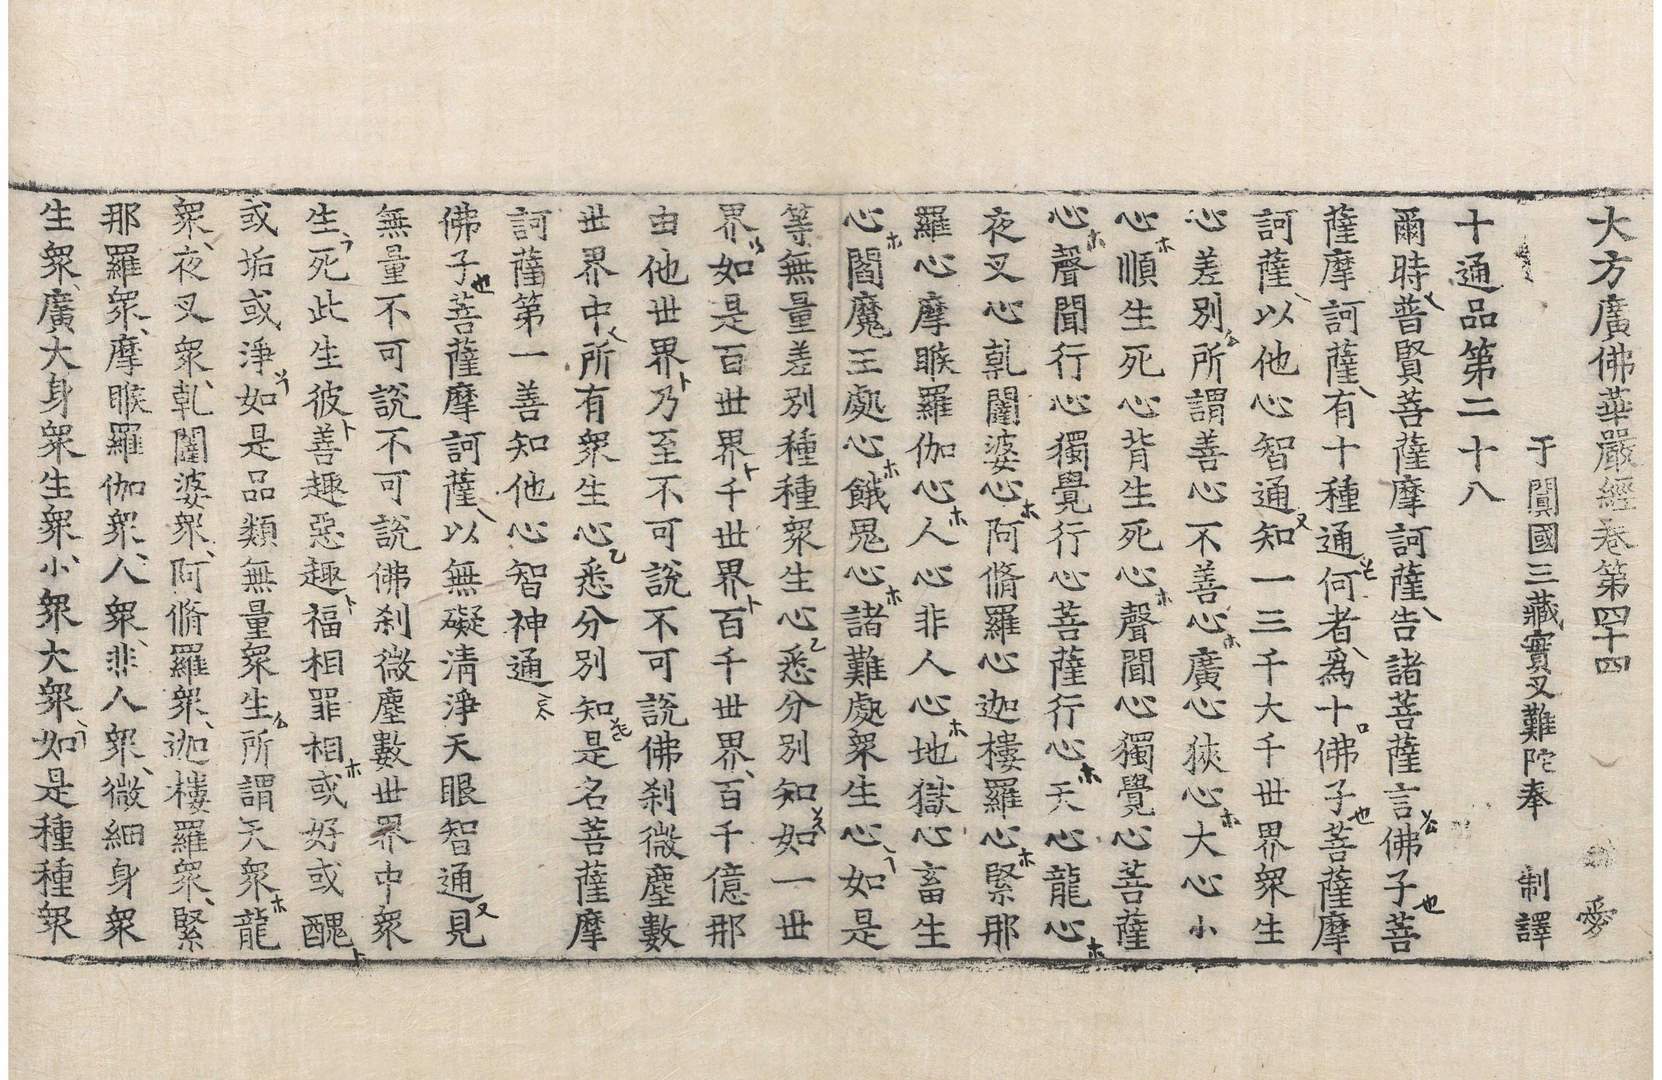 大方廣佛華嚴經卷第四十四 愛
于闐國三藏實叉難陀奉 制譯
十通品第二十八
爾時普賢菩薩摩訶薩告諸菩薩言佛子菩
薩摩訶薩有十種通何者爲十佛子菩薩摩
訶薩以他心智通知一三千大千世界衆生
心差別所謂善心不善心廣心狹心大心小
心順生死心背生死心聲聞心獨覺心菩薩
心聲聞行心獨覺行心菩薩行心天心龍心
夜叉心乹闥婆心阿脩羅心迦樓羅心緊那
羅心摩睺羅伽心人心非人心地獄心畜生
心閻魔王處心餓鬼心諸難處衆生心如是
等無量差別種種衆生心悉分別知如一世
界如是百世界千世界百千世界百千億那
由他世界乃至不可說不可說佛刹微塵數
世界中所有衆生心悉分別知是名菩薩摩
訶薩第一善知他心智神通
佛子菩薩摩訶薩以無礙清淨天眼智通見
無量不可說不可說佛刹微塵數世界中衆
生死此生彼善趣惡趣福相罪相或好或醜
或垢或淨如是品類無量衆生所謂天衆龍
衆夜叉衆乹闥婆衆阿脩羅衆迦樓羅衆緊
那羅衆摩睺羅伽衆人衆非人衆微細身衆
生衆廣大身衆生衆小衆大衆如是種種衆